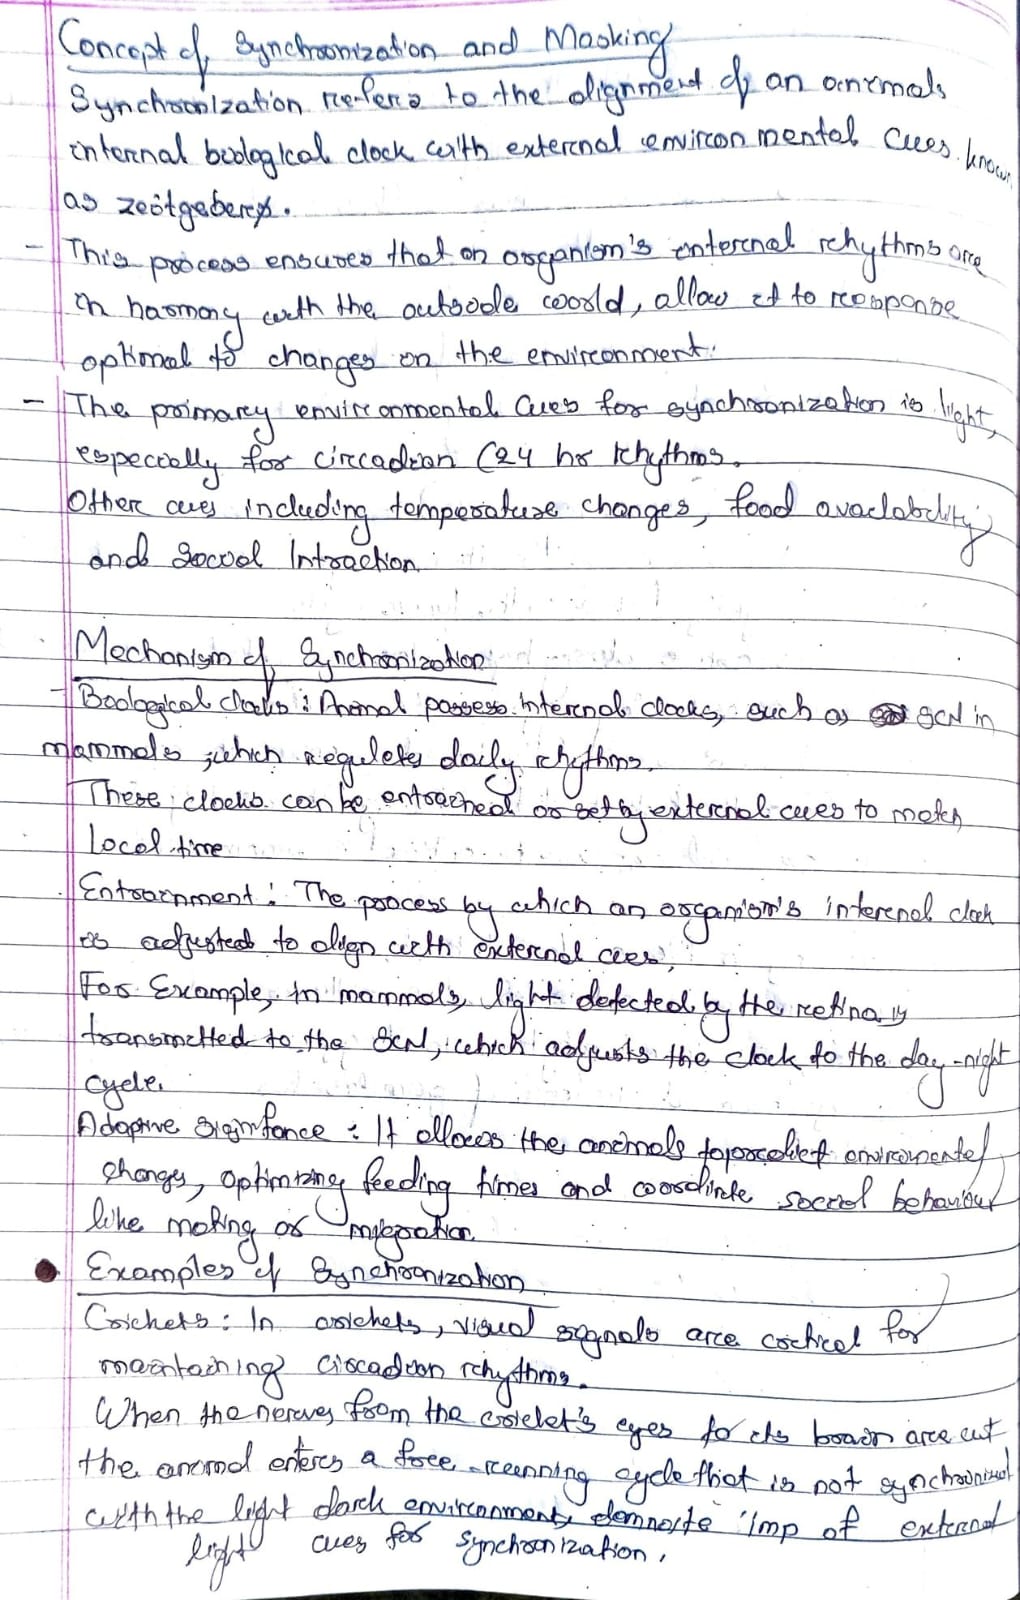 Concept of Synchronization and Masking
Synchronization refers to the alignment of an animals
internal biological clock with external environmental cues known
as zeitgebers.
- This process ensures that an organism's internal rhythms are
in harmony with the outside world, allow it to response
optimal to changes on the environment.
- The primary environmental cues for synchronization is light,
especially for circadian (24 hr rhythms.
Other cues including temperature changes, food availability
and social Intraction.
Mechanism of Synchronization
- Biological clocks : Animal possess internal clocks, such as SCN in
mammals, which regulates daily rhythms.
These clocks can be entrained or set by external cues to match
local time
Entrainment : The process by which an organism's internal clock
is adjusted to align with external cues,
For Example, in mammals, light detected by the retina is
transmitted to the SCN, which adjusts the clock to the day-night
cycle.
Adaptive Signifance : It allows the animals to predict environmental
changes, optimizing feeding times and coordinate social behaviour
like mating or migration.
Examples of Synchronization
Crickets : In crickets, visual signals are critical for
maintaining circadian rhythms.
When the nerves from the cricket's eyes to its brain are cut
the animal enters a free-running cycle that is not synchronized
with the light dark environment, imp of external
light cues for synchronization.